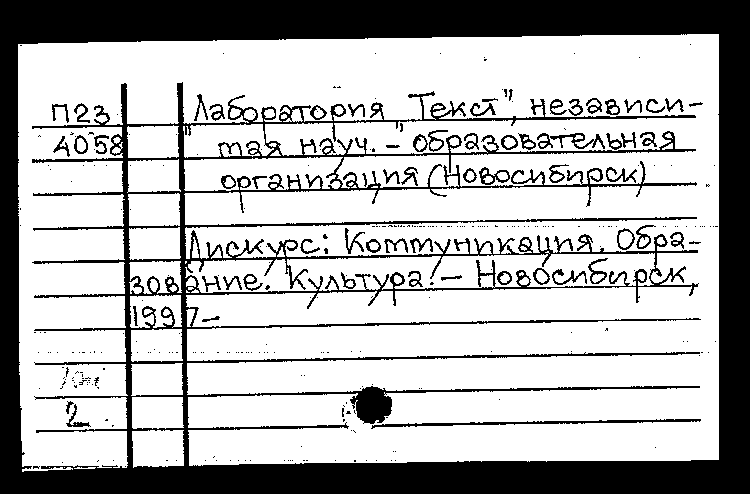 П23 Лаборатория "Текст", независи-
4058 тая науч. - образовательная
организация (Новосибирск)
Дискурс: Коммуникация. Обра-
зование. Культура. - Новосибирск,
1997-
2